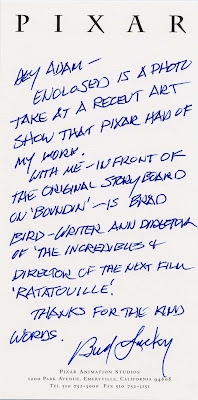 PIXAR
HEY ADAM –
ENCLOSED IS A PHOTO
TAKE AT A RECENT ART
SHOW THAT PIXAR HAD OF
MY WORK.
WITH ME – IN FRONT OF
THE ORIGINAL STORYBOARD
ON 'BOUNDIN' – IS BRAD
BIRD – WRITER AND DIRECTOR
OF 'THE INCREDIBLES &
DIRECTOR OF THE NEXT FILM
'RATATOUILLE'.
THANKS FOR THE KIND
WORDS.
Bud Luckey
PIXAR ANIMATION STUDIOS
1200 PARK AVENUE, EMERYVILLE, CALIFORNIA 94608
TEL 510 752-3000 FAX 510 752-3151